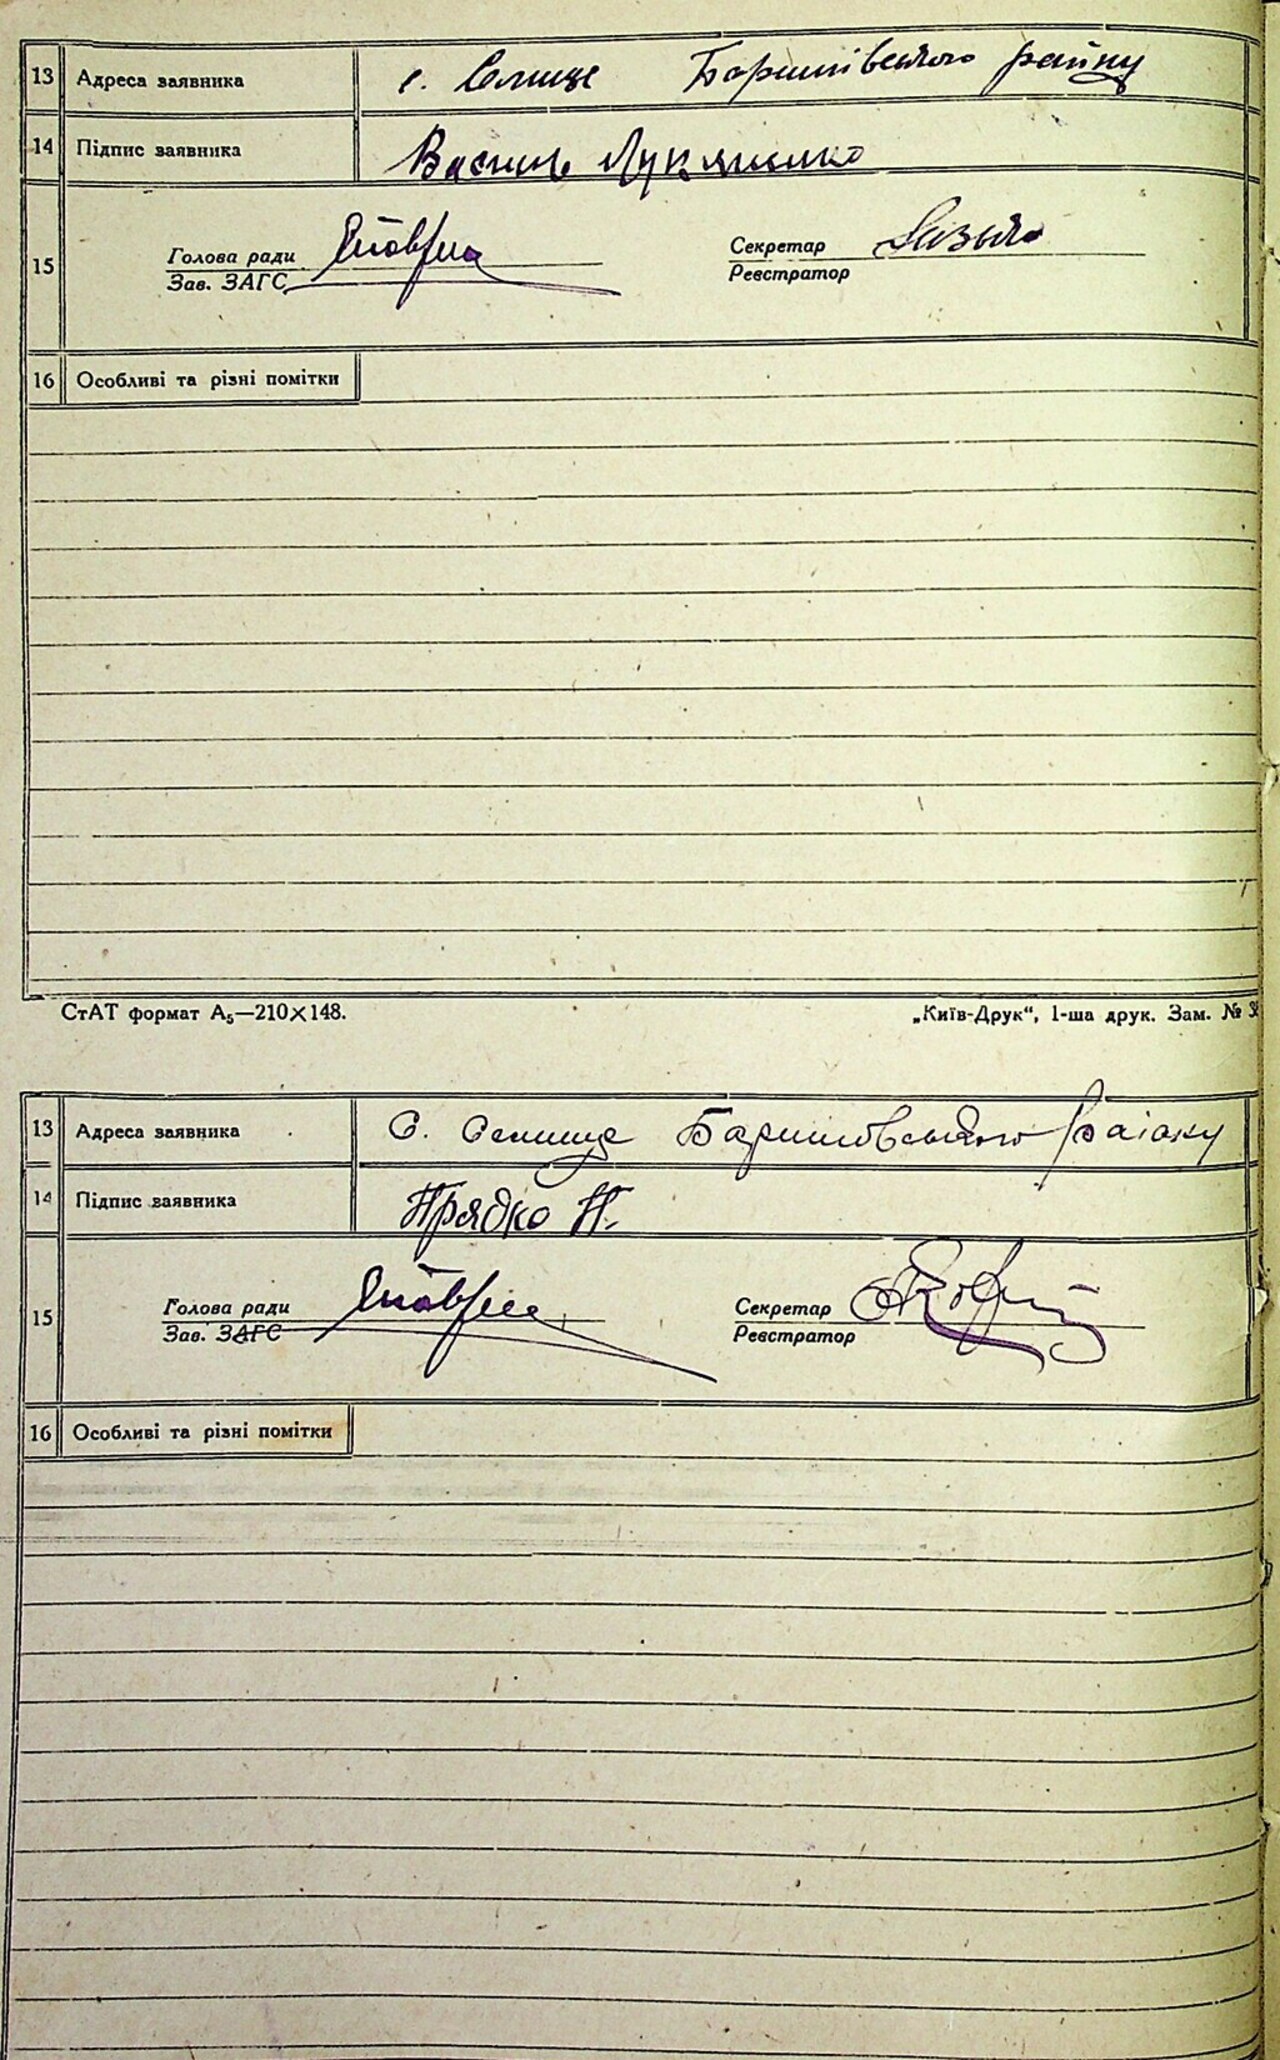 13 Адреса заявника с. Селище Баришівського району
14 Підпис заявника Василь Лукяненко
15 Голова ради Секретар
Зав. ЗАГС Реєстратор
16 Особливі та різні помітки
СтАТ формат А₅—210×148. „Київ-Друк“, 1-ша друк. Зам. №
13 Адреса заявника С. Селище Баришовського раіону
14 Підпис заявника Прядко Н.
15 Голова ради Секретар
Зав. ЗАГС Реєстратор
16 Особливі та різні помітки